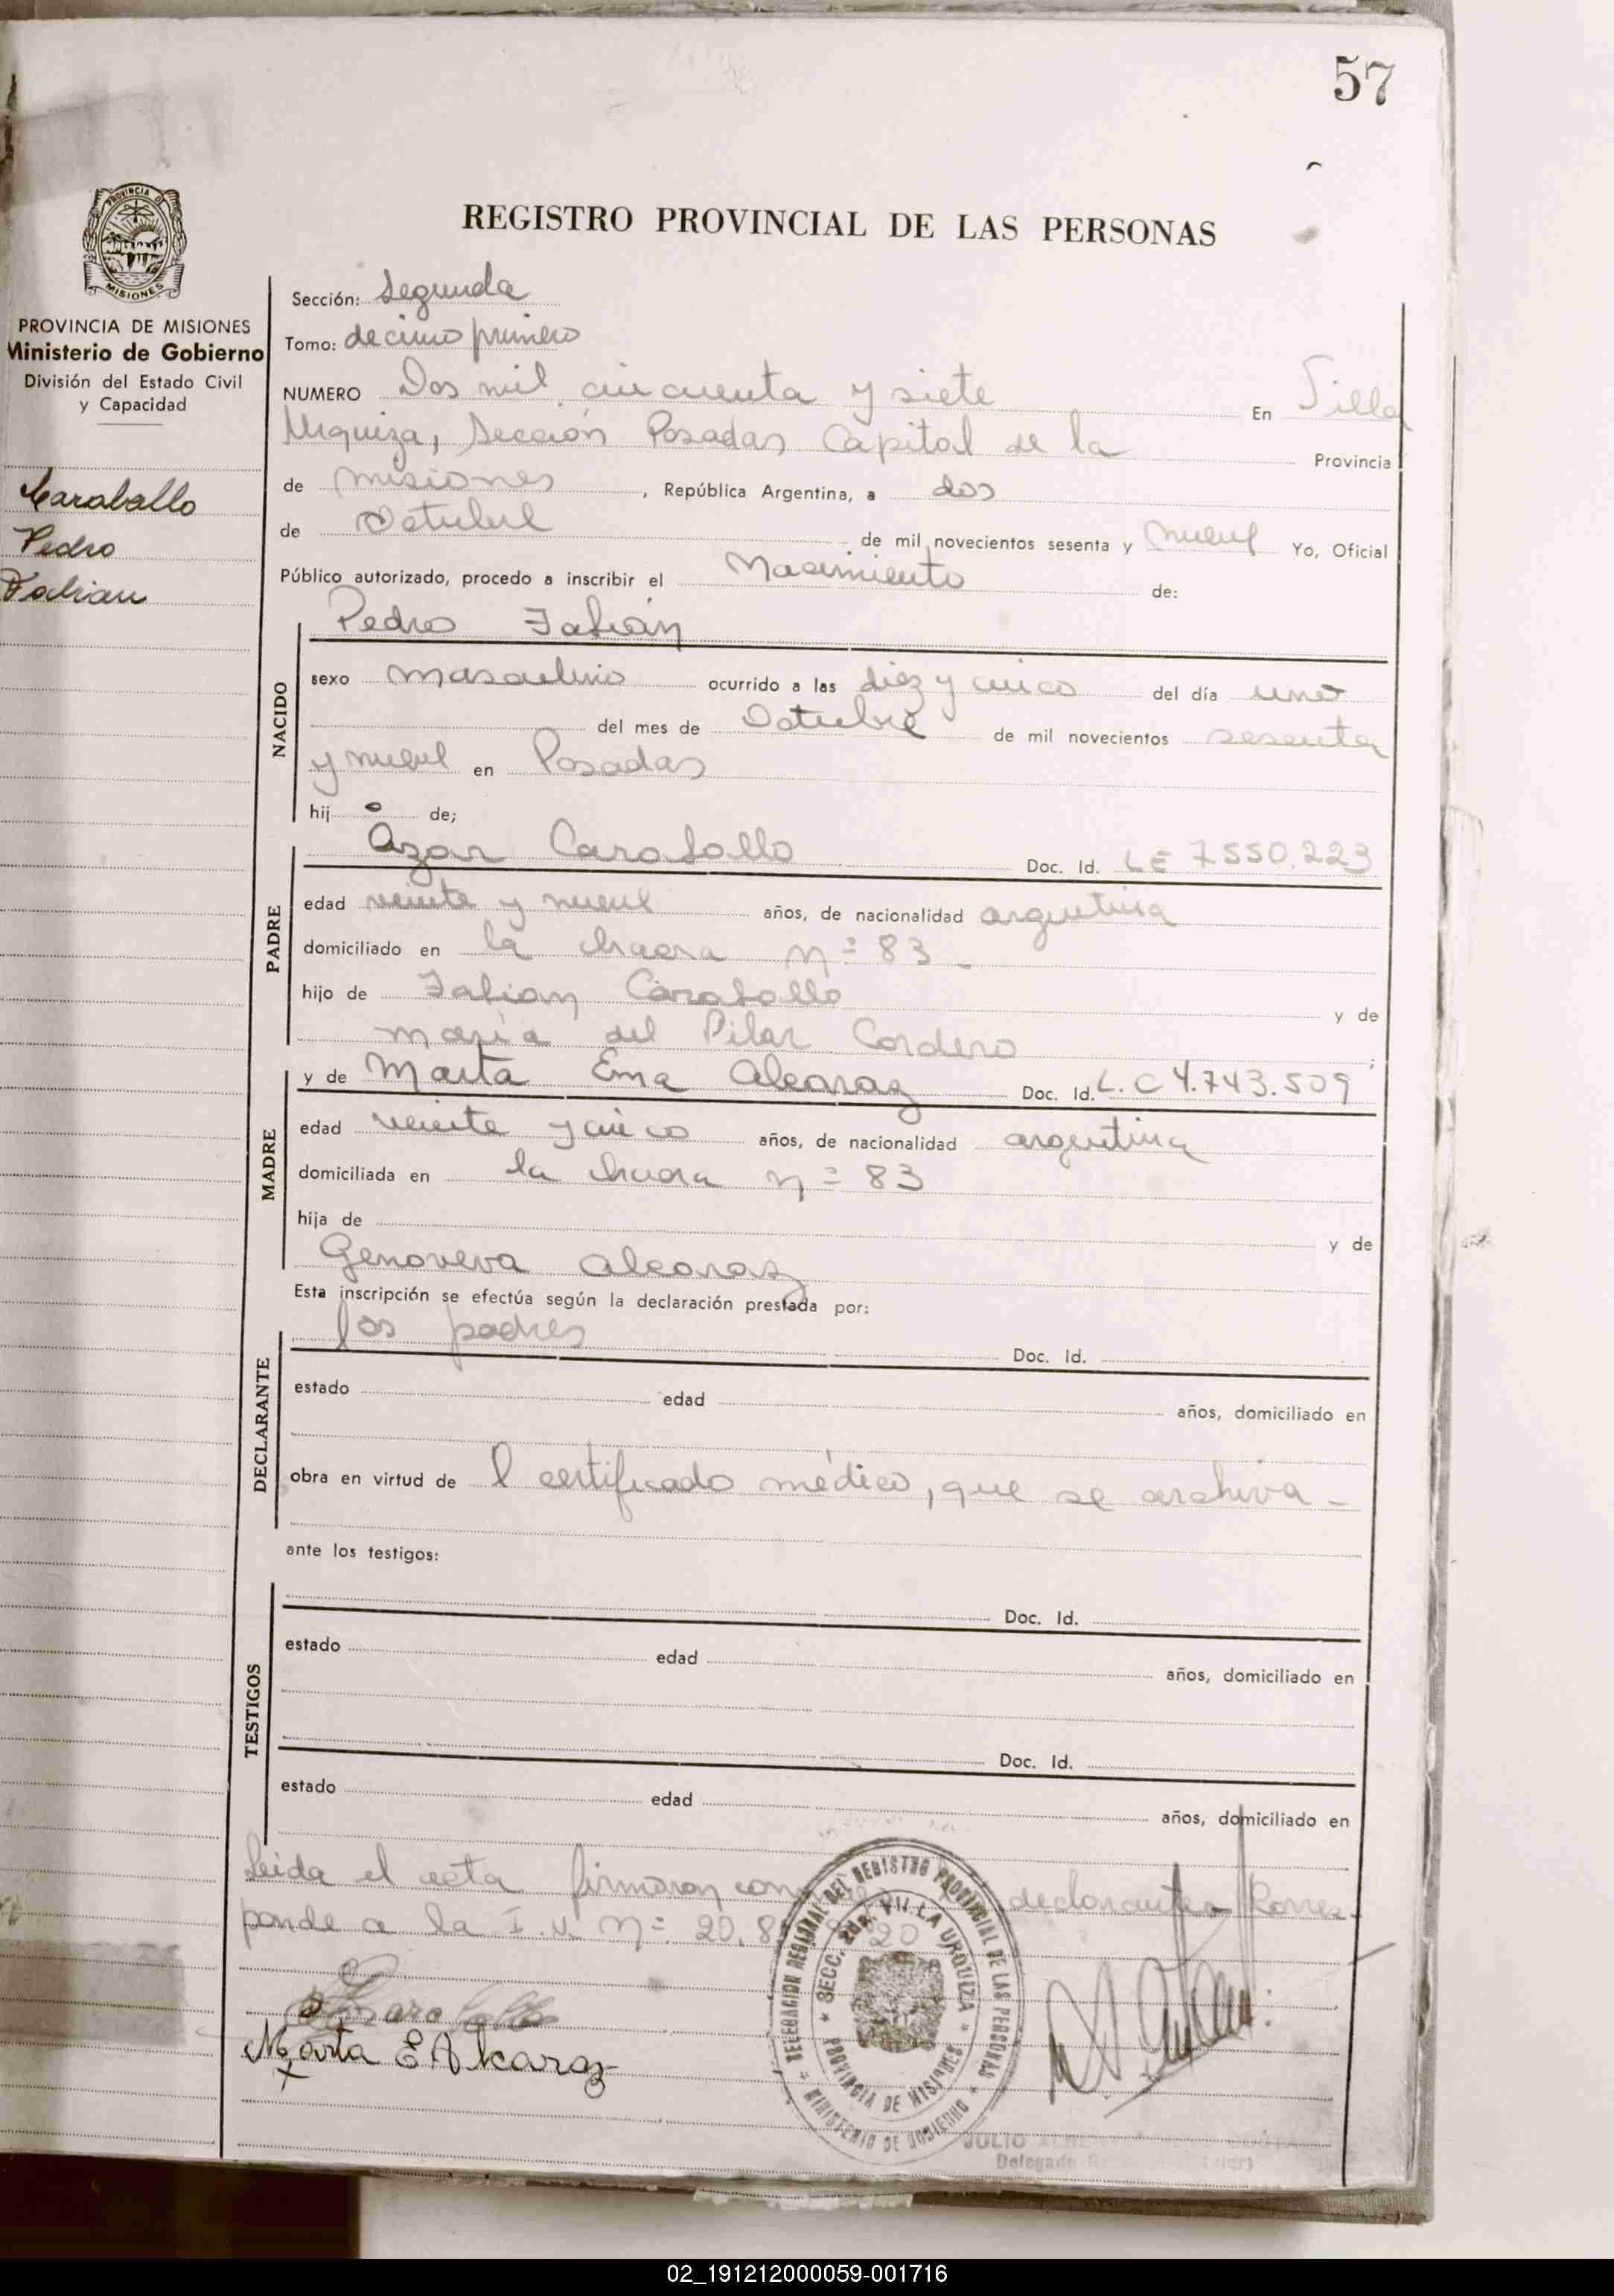 57
REGISTRO PROVINCIAL DE LAS PERSONAS
PROVINCIA DE MISIONES
Ministerio de Gobierno
División del Estado Civil
y Capacidad
Caraballo
Pedro
Fabian
Sección: Segunda
Tomo: decimo primero
NUMERO Dos mil cincuenta y siete En Villa
Urquiza, Sección Posadas Capital de la Provincia
de misiones, República Argentina, a dos
de Octubre de mil novecientos sesenta y nueve Yo, Oficial
Público autorizado, procedo a inscribir el Nacimiento de:
Pedro Fabián
NACIDO
sexo masculino ocurrido a las diez y cinco del día uno
del mes de Octubre de mil novecientos sesenta
y nueve en Posadas
hij o de;
Azar Caraballo Doc. Id. LE 7.550.223
PADRE
edad veinte y nueve años, de nacionalidad argentina
domiciliado en la chacra nº 83 -
hijo de Fabian Caraballo y de
maría del Pilar Cordero
y de Marta Ema Alcaraz Doc. Id. L.C 4.743.509
MADRE
edad veinte y cinco años, de nacionalidad argentina
domiciliada en la chacra nº 83
hija de y de
Genoveva Alcaraz
Esta inscripción se efectúa según la declaración prestada por:
los padres Doc. Id.
DECLARANTE
estado edad años, domiciliado en
obra en virtud de l certificado médico, que se archiva -
ante los testigos:
Doc. Id.
TESTIGOS
estado edad años, domiciliado en
Doc. Id.
estado edad años, domiciliado en
Leida el acta firmaron declarantes - Corres-
ponde a la I.N. nº: 20.8
Caraballo
Marta E Alcaraz
DELEGACION REGIONAL DEL REGISTRO PROVINCIAL DE LAS PERSONAS
MINISTERIO DE GOBIERNO
SECC. 2da. VILLA URQUIZA
PROVINCIA DE MISIONES
JULIO
Delegado
02_191212000059-001716